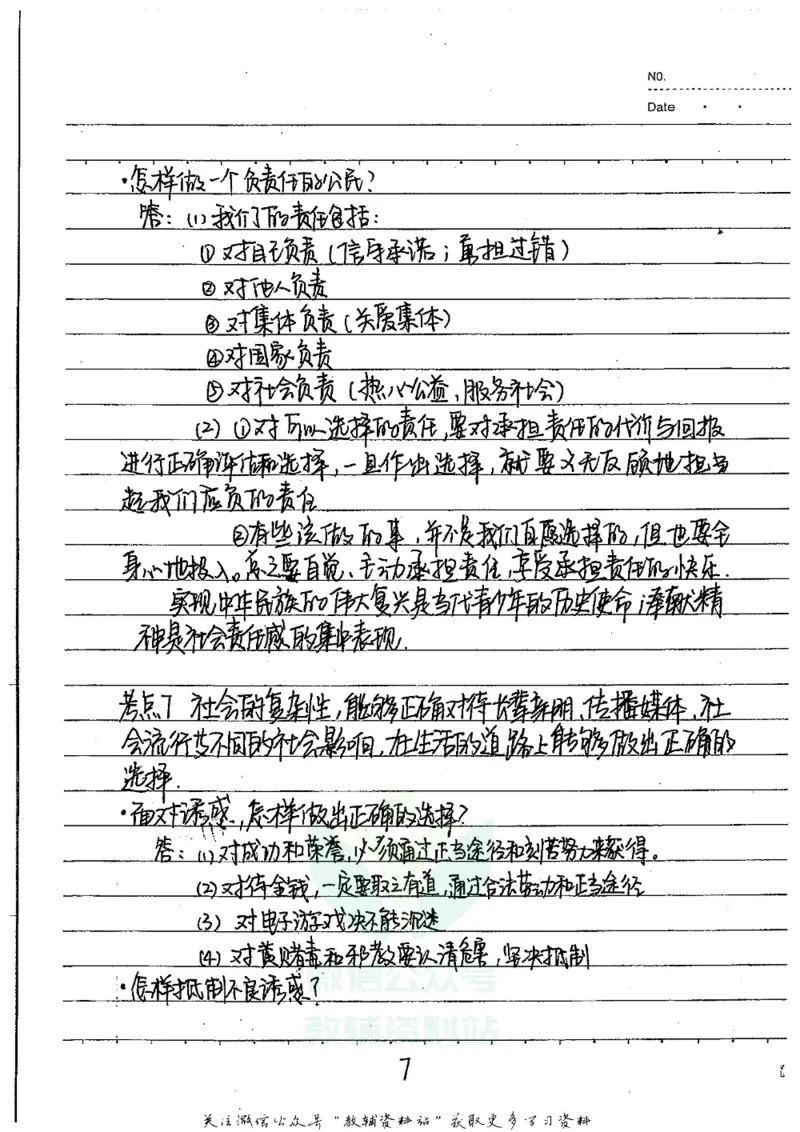 NO.
Date
·怎样做一个负责任的公民?
答:(1)我们的责任包括:
①对自己负责(信守承诺;勇担过错)
②对他人负责
③对集体负责(关爱集体)
④对国家负责
⑤对社会负责(热心公益,服务社会)
(2)①对所以选择的责任,要对承担责任的代价与回报
进行正确评估和选择,一旦作出选择,就要义无反顾地担当
起我们应负的责任
②有些该做的事,并不是我们自愿选择的,但也要全
身心地投入。总之要自觉、主动承担责任,享受承担责任的快乐.
实现中华民族的伟大复兴是当代青少年的历史使命;奉献精
神是社会责任感的集中表现.
考点7 社会的复杂性,能够正确对待长辈亲朋、传播媒体、社
会流行等不同的社会影响,在生活的道路上能够做出正确的
选择.
·面对诱惑,怎样做出正确的选择?
答:(1)对成功和荣誉,必须通过正当途径和刻苦努力来获得。
(2)对待金钱,一定要取之有道,通过合法劳动和正当途径
(3) 对电子游戏决不能沉迷
(4) 对黄赌毒和邪教要认清危害,坚决抵制
·怎样抵制不良诱惑?
微信公众号
教辅资料站
7
关注微信公众号"教辅资料站"获取更多学习资料